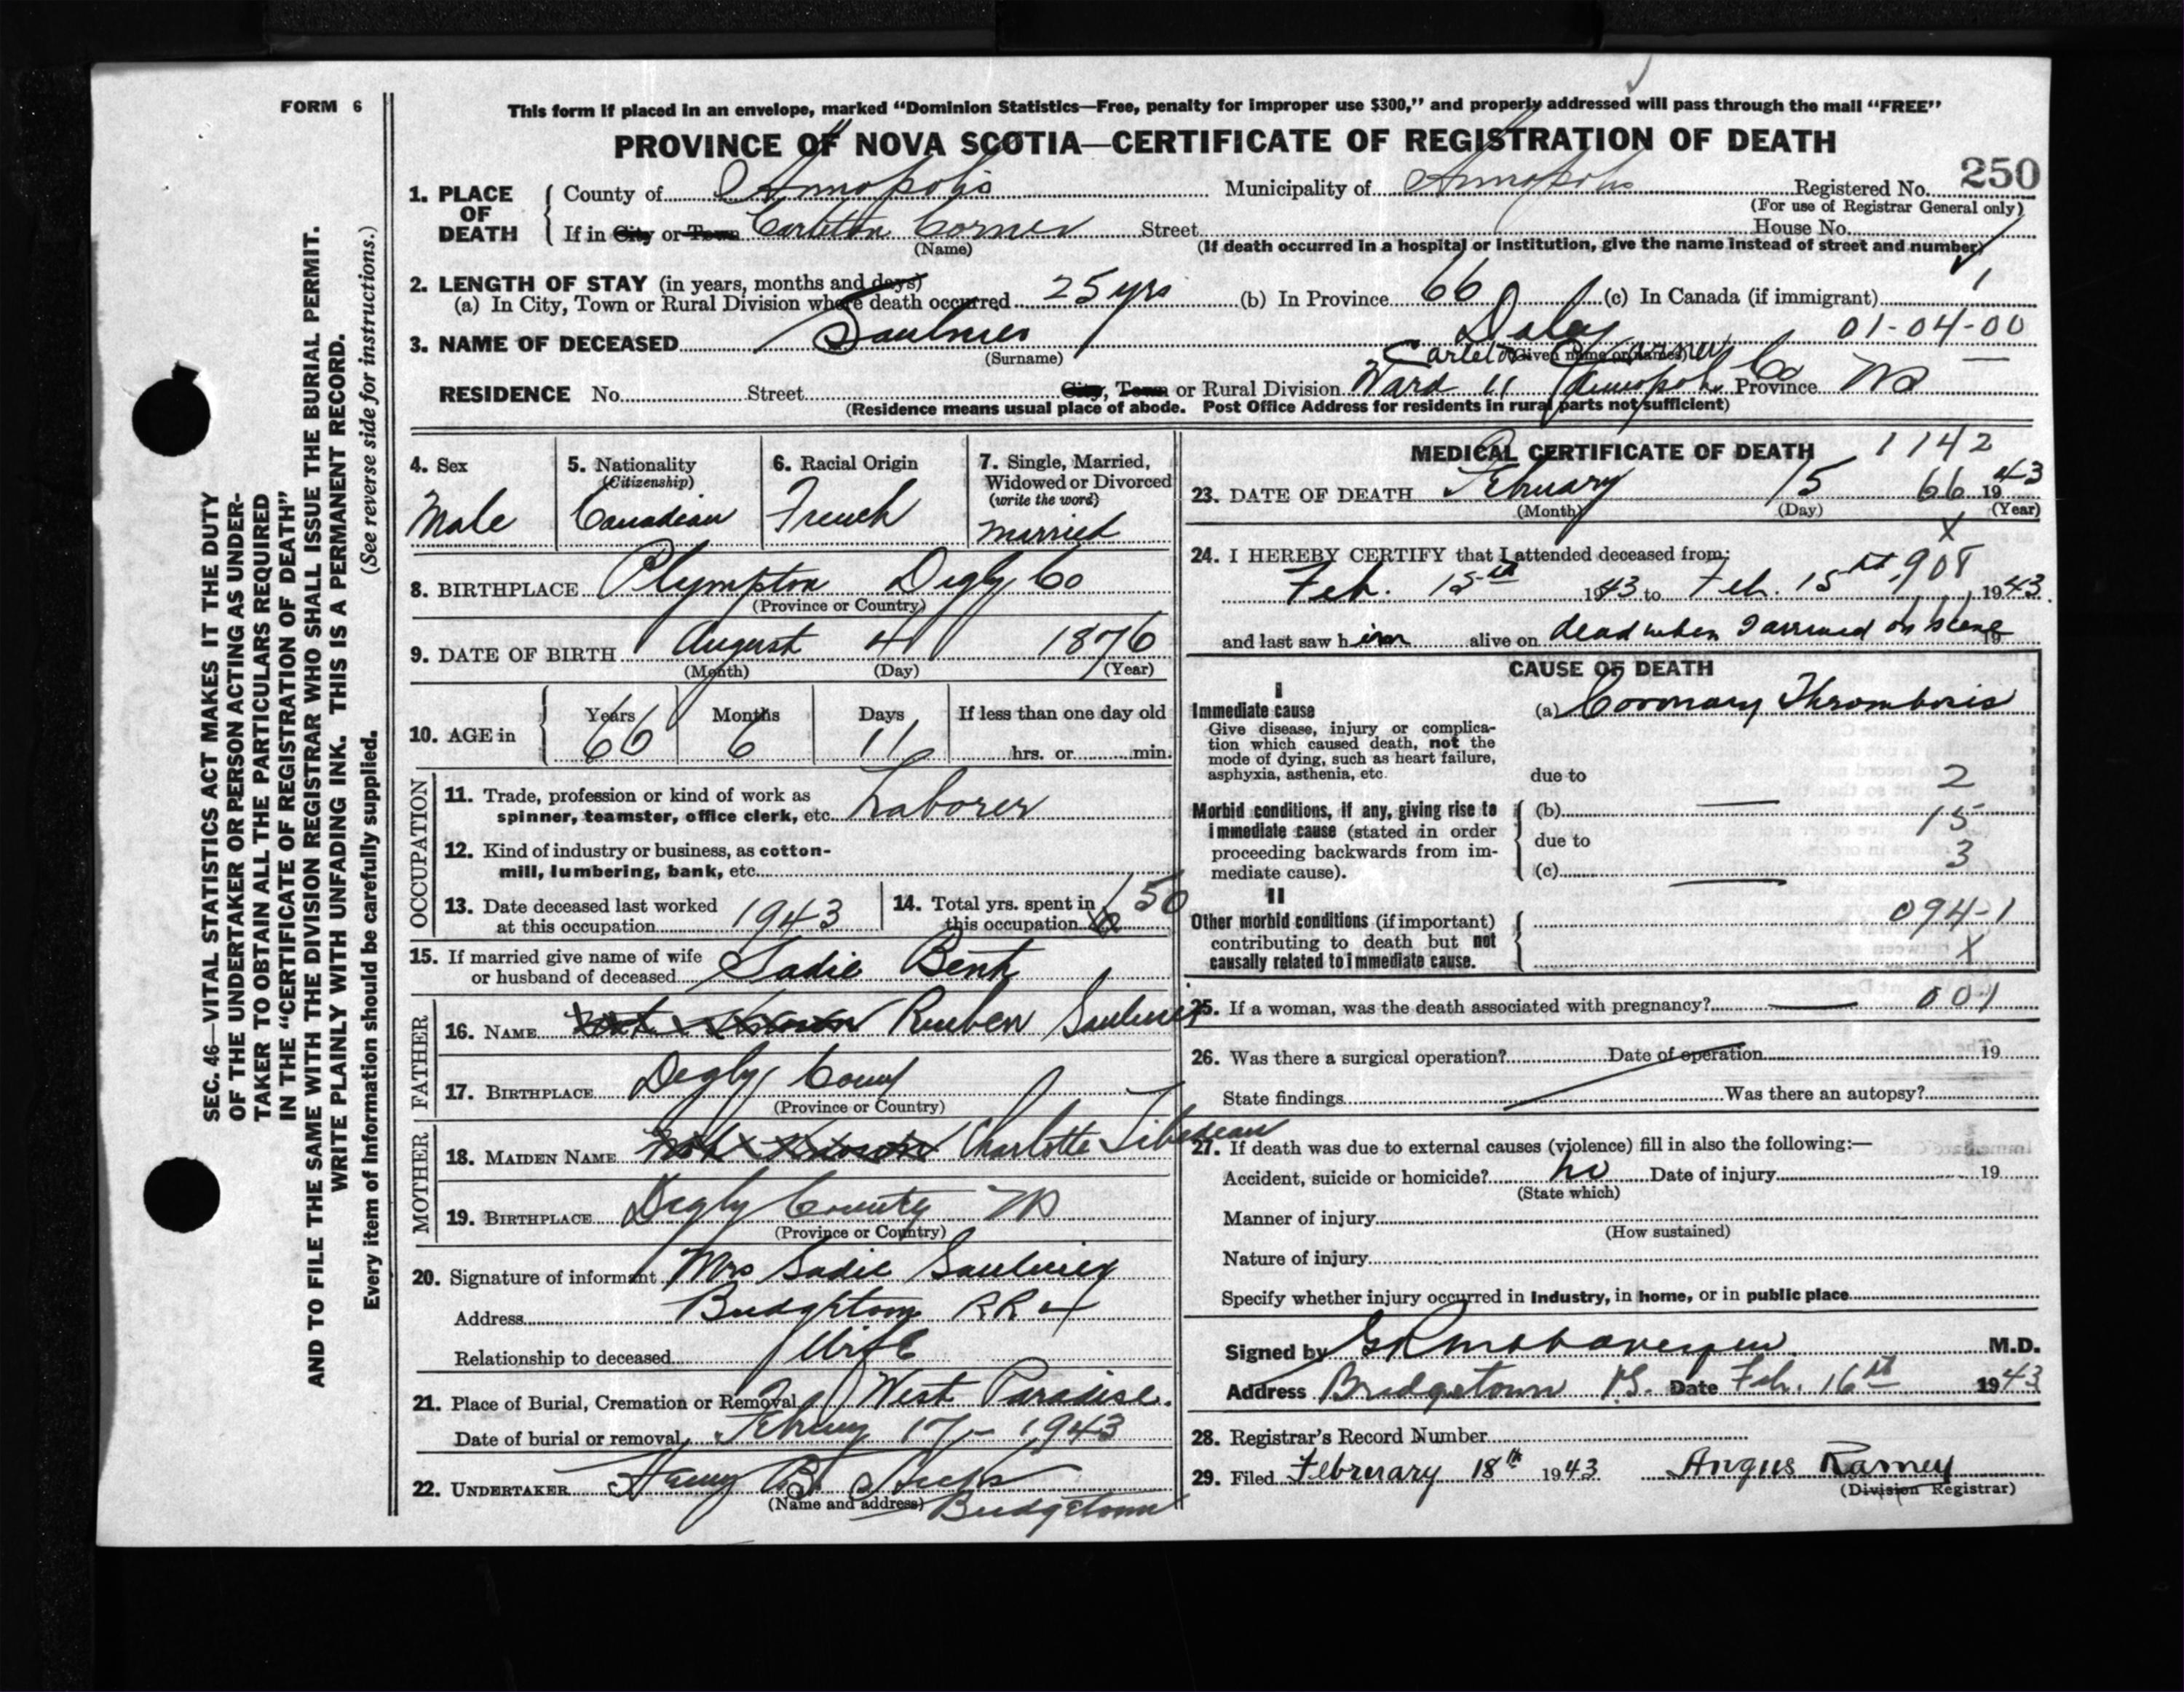 FORM 6
This form if placed in an envelope, marked “Dominion Statistics—Free, penalty for improper use $300,” and properly addressed will pass through the mail “FREE”
PROVINCE OF NOVA SCOTIA—CERTIFICATE OF REGISTRATION OF DEATH
250
1. PLACE OF DEATH
County of Annapolis Municipality of Annapolis Registered No.
(For use of Registrar General only)
If in City or Town Carleton Corner Street House No.
(Name) (If death occurred in a hospital or institution, give the name instead of street and number)
2. LENGTH OF STAY (in years, months and days)
(a) In City, Town or Rural Division where death occurred 25 yrs (b) In Province 66 (c) In Canada (if immigrant) 1
3. NAME OF DECEASED Saulnier Daley 01-04-00
(Surname) (Given name or names)
Carleton Corner
RESIDENCE No. Street City, Town or Rural Division Ward 11 Annapolis Co Province NS
(Residence means usual place of abode. Post Office Address for residents in rural parts not sufficient)
4. Sex
Male
5. Nationality
(Citizenship)
Canadian
6. Racial Origin
French
7. Single, Married,
Widowed or Divorced
(write the word)
Married
8. BIRTHPLACE Plympton Digby Co
(Province or Country)
9. DATE OF BIRTH August 4 1876
(Month) (Day) (Year)
10. AGE in
Years Months Days If less than one day old
66 6 11 hrs. or min.
OCCUPATION
11. Trade, profession or kind of work as
spinner, teamster, office clerk, etc. Laborer
12. Kind of industry or business, as cotton-
mill, lumbering, bank, etc.
13. Date deceased last worked
at this occupation 1943
14. Total yrs. spent in
this occupation 50
15. If married give name of wife
or husband of deceased Sadie Bent
FATHER
16. NAME Not Known Reuben Saulnier
17. BIRTHPLACE Digby County
(Province or Country)
MOTHER
18. MAIDEN NAME Not Known Charlotte Tibedeau
19. BIRTHPLACE Digby County NS
(Province or Country)
20. Signature of informant Mrs Sadie Saulnier
Address Bridgetown RR 4
Relationship to deceased Wife
21. Place of Burial, Cremation or Removal West Paradise.
Date of burial or removal February 17 - 1943
22. UNDERTAKER B. Hicks
(Name and address) Bridgetown
MEDICAL CERTIFICATE OF DEATH 1142
23. DATE OF DEATH February 15 66 1943
(Month) (Day) (Year)
X
24. I HEREBY CERTIFY that I attended deceased from:
908
Feb. 15th 1943 to Feb. 15th 1943
and last saw him alive on dead when I arrived on scene 19
CAUSE OF DEATH
I
Immediate cause
Give disease, injury or complica-
tion which caused death, not the
mode of dying, such as heart failure,
asphyxia, asthenia, etc.
(a) Coronary Thrombosis
due to 2
Morbid conditions, if any, giving rise to
immediate cause (stated in order
proceeding backwards from im-
mediate cause).
(b) — 15
due to
3
(c) —
II
Other morbid conditions (if important)
contributing to death but not
causally related to immediate cause.
094-1
X
25. If a woman, was the death associated with pregnancy? — 001
26. Was there a surgical operation? Date of operation 19
State findings Was there an autopsy?
27. If death was due to external causes (violence) fill in also the following:—
Accident, suicide or homicide? no Date of injury 19
(State which)
Manner of injury
(How sustained)
Nature of injury
Specify whether injury occurred in industry, in home, or in public place
Signed by M.D.
Address Bridgetown N.S. Date Feb. 16th 1943
28. Registrar's Record Number
29. Filed February 18th 1943 Angus Ramey
(Division Registrar)
SEC. 46—VITAL STATISTICS ACT MAKES IT THE DUTY
OF THE UNDERTAKER OR PERSON ACTING AS UNDER-
TAKER TO OBTAIN ALL THE PARTICULARS REQUIRED
IN THE “CERTIFICATE OF REGISTRATION OF DEATH”
AND TO FILE THE SAME WITH THE DIVISION REGISTRAR WHO SHALL ISSUE THE BURIAL PERMIT.
WRITE PLAINLY WITH UNFADING INK. THIS IS A PERMANENT RECORD.
Every item of information should be carefully supplied. (See reverse side for instructions.)